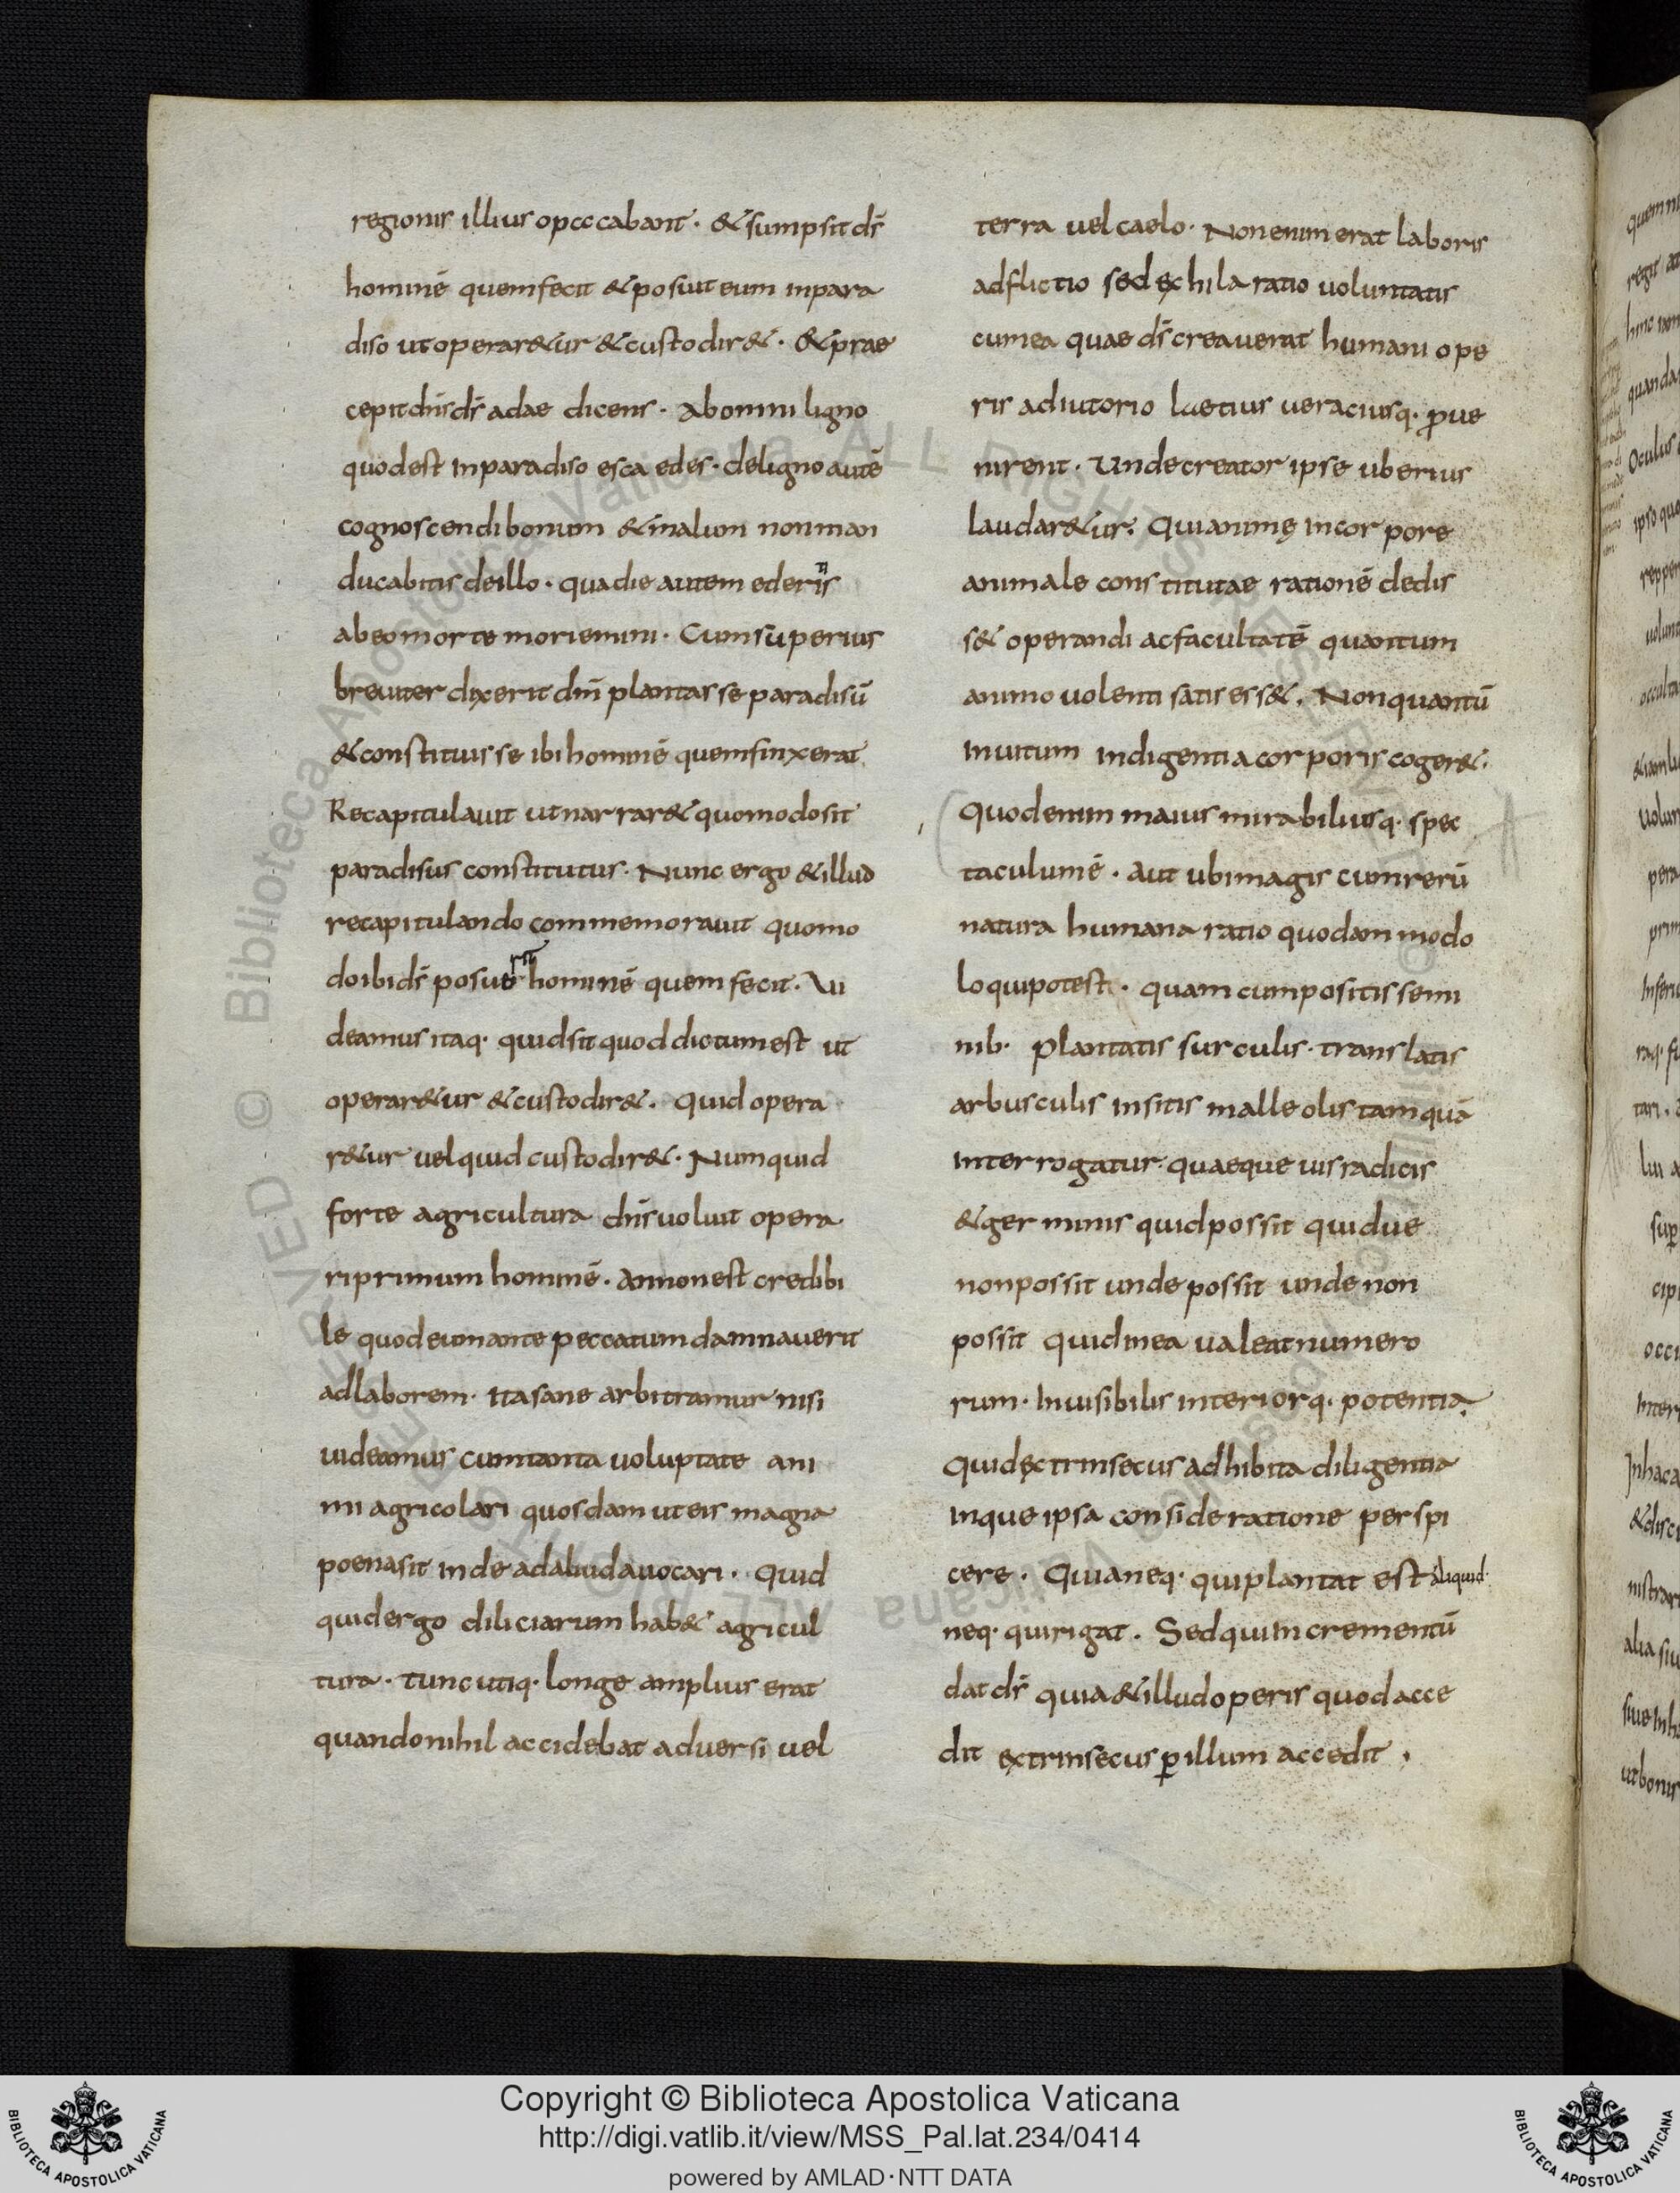 regionis illius opacabant · & sumpsit ds̄
hominē quem fecit & posuit eum inpara
diso ut operar&ur & custodir& · & prae
cepit dn̄s ds̄ adae dicens · Ab omni ligno
quod est inparadiso esca edes · deligno autē
cognoscendi bonum & malum non man
ducabitis deillo · qua die autem ederitis
ab eo morte moriemini · Cum superius
breuiter dixerit dn̄m plantasse paradisū
& constituisse ibi hominē quem finxerat
Recapitulauit ut narrar& quomodo sit
paradisus constitutus · Nunc ergo & illud
recapitulando commemorauit quomo
do ibi ds̄ posuerit hominē quem fecit · Vi
deamus itaq· quid sit quod dictum est ut
operar&ur & custodir& · quid opera
r&ur uel quid custodir& · Numquid
forte agricultura dn̄s uoluit opera
ri primum hominē · An non est credibi
le quod eum ante peccatum damnauerit
ad laborem · Ita sane arbitramur nisi
uideamus cum tanta uoluptate ani
mi agricolari quosdam ut eis magna
poena sit inde ad aliud auocari · Quid
quid ergo diliciarum hab& agricul
tura · tunc utiq· longe amplius erat
quando nihil accidebat aduersi uel
terra uel caelo · Non enim erat laboris
adflictio sed exhilaratio uoluntatis
cum ea quae ds̄ creauerat humani ope
ris adiutorio laetius ueraciusq· ꝓue
nirent · Unde creator ipse uberius
laudar&ur · Qui animę in corpore
animale constitutae rationē dedis
s& operandi ac facultatē quantum
animo uolenti satis ess& · Non quantū
inuitum indigentia corporis coger& ·
Quod enim maius mirabiliusq· spec
taculum ē · aut ubi magis cum rerū
natura humana ratio quodam modo
loqui potest · quam cum positis semi
nib· plantatis surculis · translatis
arbusculis insitis malleolis tamquā
interrogatur · quaeque uis radicis
& germinis quid possit quid ue
non possit unde possit unde non
possit quid in ea ualeat numero
rum · Inuisibilis interiorq· potentia ·
Quid extrinsecus adhibita diligentia
inque ipsa consideratione perspi
cere · Quia neq· qui plantat est aliquid·
neq· qui rigat · Sed qui incrementū
dat ds̄ quia & illud operis quod acce
dit extrinsecus ꝑ illum accedit ·
Copyright © Biblioteca Apostolica Vaticana
http://digi.vatlib.it/view/MSS_Pal.lat.234/0414
powered by AMLAD · NTT DATA
BIBLIOTECA APOSTOLICA VATICANA
BIBLIOTECA APOSTOLICA VATICANA